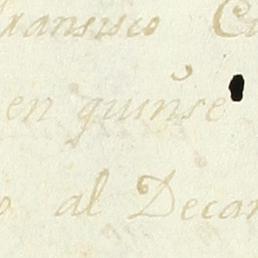 fransisco Cu
en quinse
o al Decan